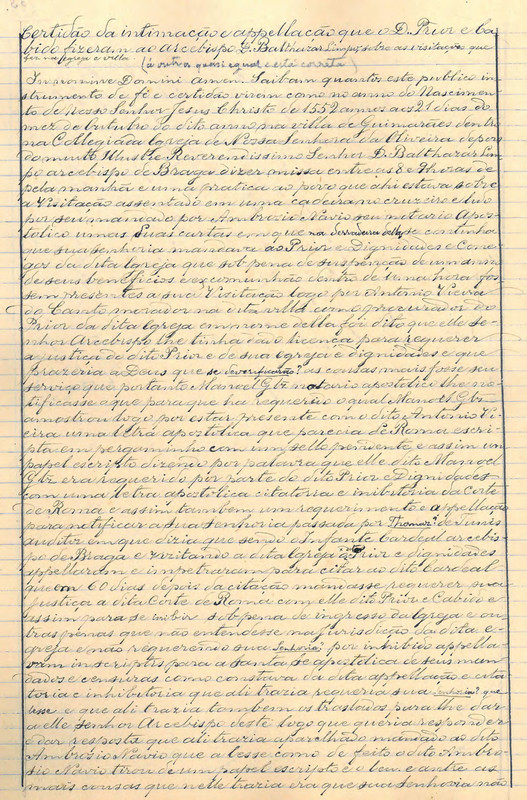 Certidão da intimação e appellação que o D. Prior e Ca-
bido fizeram ao arcebispo D. Balthazar Limpo, sobre as visitações que
fez na Igreja e villa
(á outra quasi egual e está correta)
In nomine Domini amen. Saibam quantos este publico in-
strumento de fé e certidão virem como no anno do Nascimen-
to de Nosso Senhor Jesus Christo de 1552 annos aos 21 dias do
mez de outubro do dito anno na villa de Guimarães dentro
na Collegiada Igreja de Nossa Senhora da Oliveira depois
do muito Illustre Reverendissimo Senhor D. Balthazar Lim-
po arcebispo de Braga dizer missa entre as 8 e 9 horas de
pela manhã e uma pratica ao povo que ahi estava sobre
a Visitação assentado em uma cadeira no cruzeiro e lido
por seu mandado por Ambrozio Navio seu notario Apos-
tolico umas suas cartas em que na derradeira dellas se continha
que sua Senhoria mandava ao Prior e Dignidades e Cone-
gos da dita Igreja que sob pena de suspenção de um anno
de seus beneficios e excommunhão dentro de uma hora fos-
sem presentes a sua Visitação logo por Antonio Vieira
do Canto morador na dita villa como procurador do
Prior da dita Igreja em nome della foi dito que elle se-
nhor Arcebispo lhe tinha dado licença para requerer
a justiça do dito Prior e de sua Igreja e dignidades e que
prazeria a Deus que se as cousas mais fosse seu
serviço que portanto Manoel Glz notario apostolico lhe no-
tificasse o que para que ha requerido o qual Manoel Glz
amostrou logo por estar presente com o dito Antonio Vi-
eira uma letra apostolica que parecia de Roma escri-
pta em pergaminho com um sello pendente e assim um
papel escripto dizendo por palavra que elle dito Manoel
Glz era requerido por parte do dito Prior e Dignidades
com uma letra apostolica citatoria e inibitoria da Corte
de Roma e assim tambem um requerimento e appellação
para notificar a sua Senhoria passada por Thomaz? de
auditor em que dizia que sendo o Infante Cardeal arcebis-
po de Braga e Visitando a dita Igreja o Prior e dignidades
appellaram e impetraram para citar ao dito Cardeal
que em 60 dias depois da citação mandasse requerer sua
justiça a dita Corte de Roma com elle dito Prior e Cabido e
assim para se inibir sob pena de ingresso da Igreja e ou-
tras penas que não entendesse na jurisdição da dita I-
greja e não requerendo sua Senhoria? por inhibido appella-
vam inscriptis para a Santa Sé apostolica de seus man-
dados e censuras como constava da dita appellação e cita-
toria e inhibitoria que ali trazia requeria sua Senhoria? que
lesse e que ali trazia tambem os traslados para lhe dar
a elle senhor Arcebispo deste logo que queria responder
e dar resposta que ali trazia aparelhão mandado ao dito
Ambrozio Navio que a lesse como de feito o dito Ambro-
sio Navio tirou de um papel escripto e o leu e entre as
mais cousas que nelle trazia era que sua Senhoria não